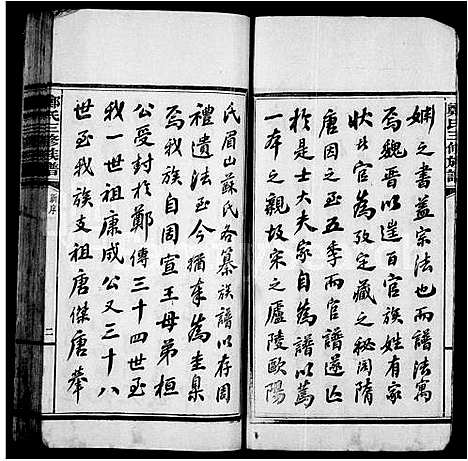 鄭氏三修族譜
姻之書蓋宗法也而譜法寓
焉魏晉以邅百官族姓有家
狀此官為攷定藏之秘閣隋
唐因之至五季而官譜遂亡
於是士大夫家自為譜以篤
一本之親故宋之廬陵歐陽
氏眉山蘇氏各纂族譜以存周
禮遺法至今猶奉為圭臬
焉我族自周宣王母弟桓
公受封於鄭傳三十四世至
我一世祖康成公又三十八
世至我族支祖唐傑唐
鄭氏三修族譜
新序
二